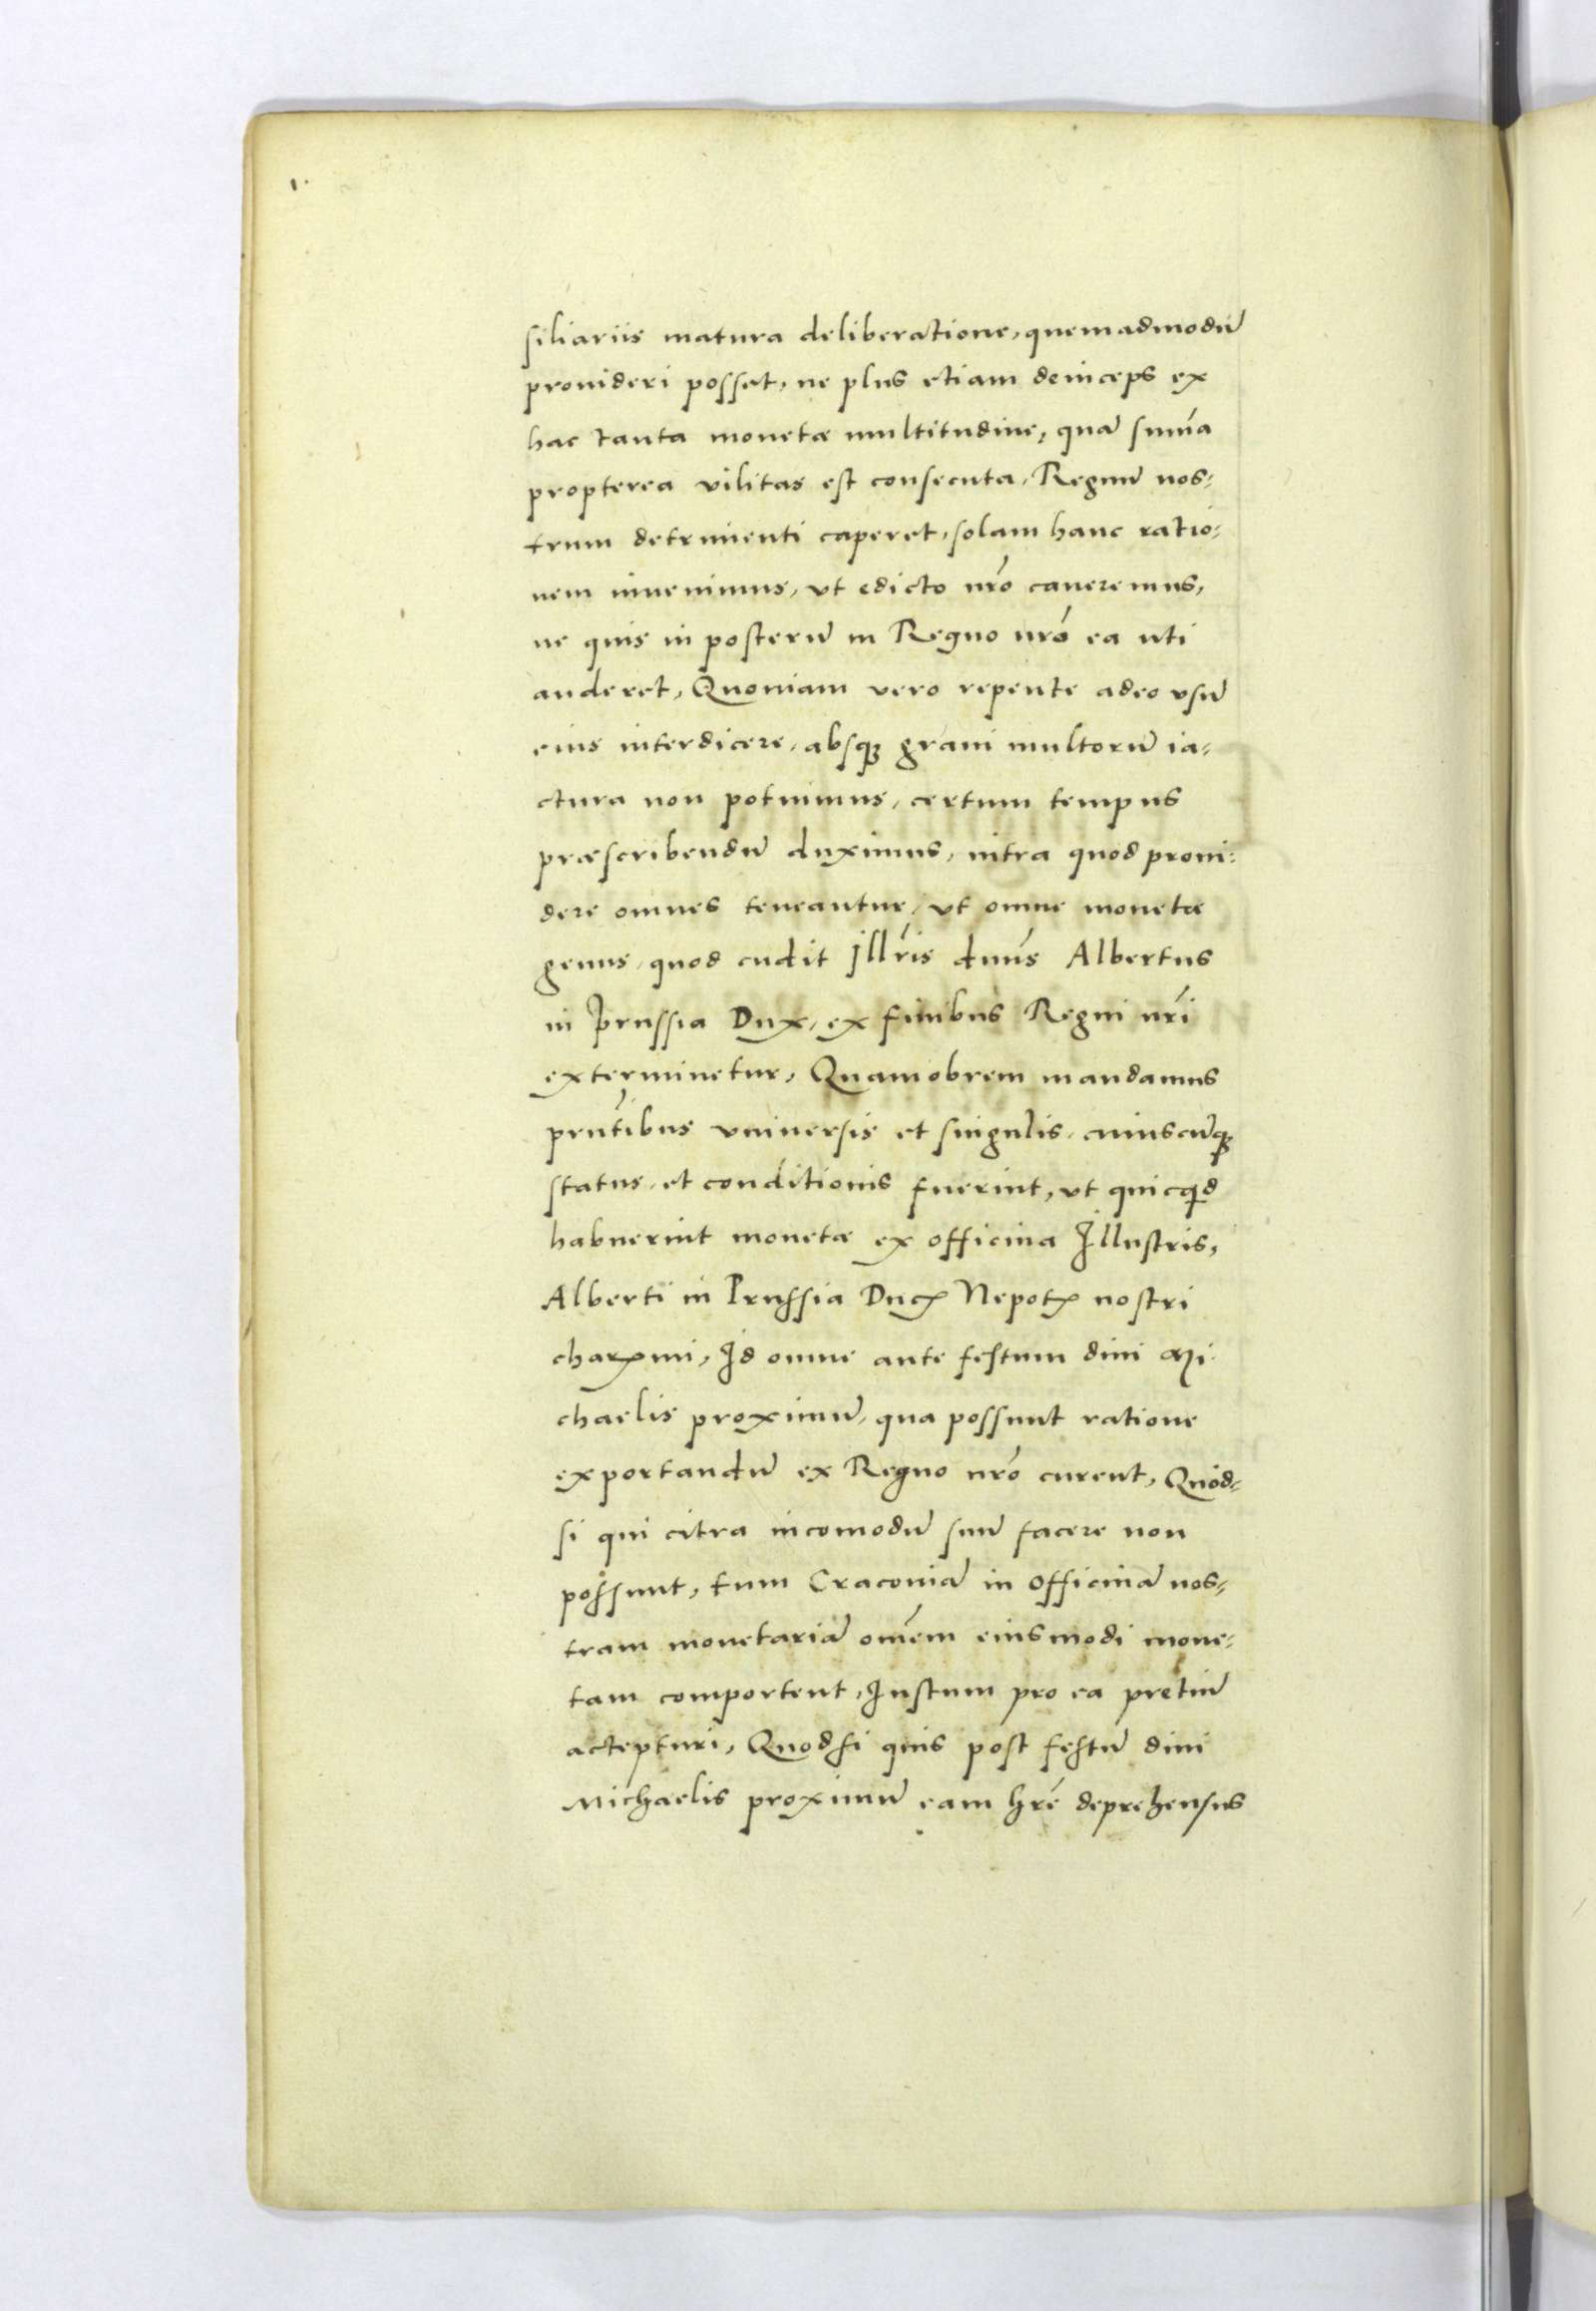 siliariis matura deliberatione, quemadmodũ
prouideri posset, ne plus etiam deinceps ex
hac tanta monetæ multitudine, quã sum̃a
propterea vilitas est consecuta, Regnũ nos-
trum detrimenti caperet, solam hanc ratio-
nem inuenimus, vt edicto nr̃o caueremus,
ne quis in posterũ in Regno nr̃o ea uti
auderet, Quoniam vero repente adeo vsũ
eius interdicere, absq; graui multorũ ia-
ctura non potuimus, certum tempus
præscribendũ duximus, intra quod proui-
dere omnes teneantur, vt omne monetæ
genus, quod cudit Jllr̃is dnũs Albertus
in Prussia Dux, ex finibus Regni nr̃i
exterminetur, Quamobrem mandamus
prñtibus vniuersis et singulis, cuiuscũq;
status, et conditionis fuerint, vt quicq̃d
habuerint monetæ ex officina Illustris,
Alberti in Prussia Ducꝭ Nepotꝭ nostri
charꝭmi, Id omne ante festum diui Mi-
chaelis proximũ, qua possunt ratione
exportandũ ex Regno nr̃o curent, Quod-
si qui citra incomodũ suũ facere non
possunt, tum Cracouiã in officinã nos-
tram monetariã om̃em eiusmodi mone-
tam comportent, Iustum pro ea pretiũ
accepturi, Quodsi quis post festũ diui
Michaelis proximũ eam hr̃e deprehensus